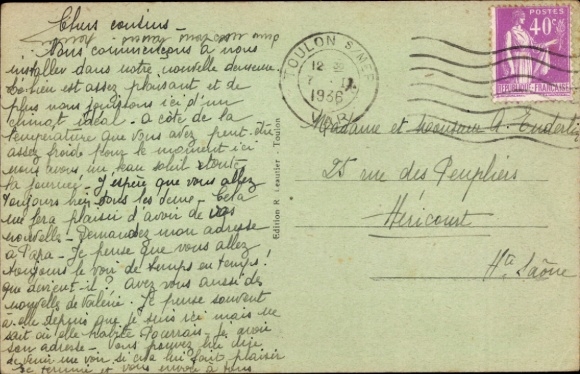 Chers cousins -
Nous commençons à nous
installer dans notre nouvelle demeure.
est assez plaisant et de
plus nous jouissons ici d'un
climat idéal - à côté de la
température que vous avez peut-être
assez froide pour le moment ici
nous avons un beau soleil toute
la journée. - J'espère que vous allez
toujours bien tous les deux - Cela
me fera plaisir d'avoir de vos
nouvelles - Demandez mon adresse
à Papa - Je pense que vous allez
toujours le voir de temps en temps !
que devient-il ? Avez vous aussi des
nouvelles de Valérie. Je pense souvent
à elle depuis que je suis ici mais ne
sait où elle habite
son adresse - Vous pouvez lui dire
de venir me voir si cela lui fait plaisir
Je termine et vous envoie à tous
Edition R. Leautier - Toulon
TOULON S/MER
12
7
1936
VAR
POSTES
40c
REPUBLIQUE FRANÇAISE
Madame et Monsieur A.
25 rue des Peupliers
Héricourt
Hte Saône